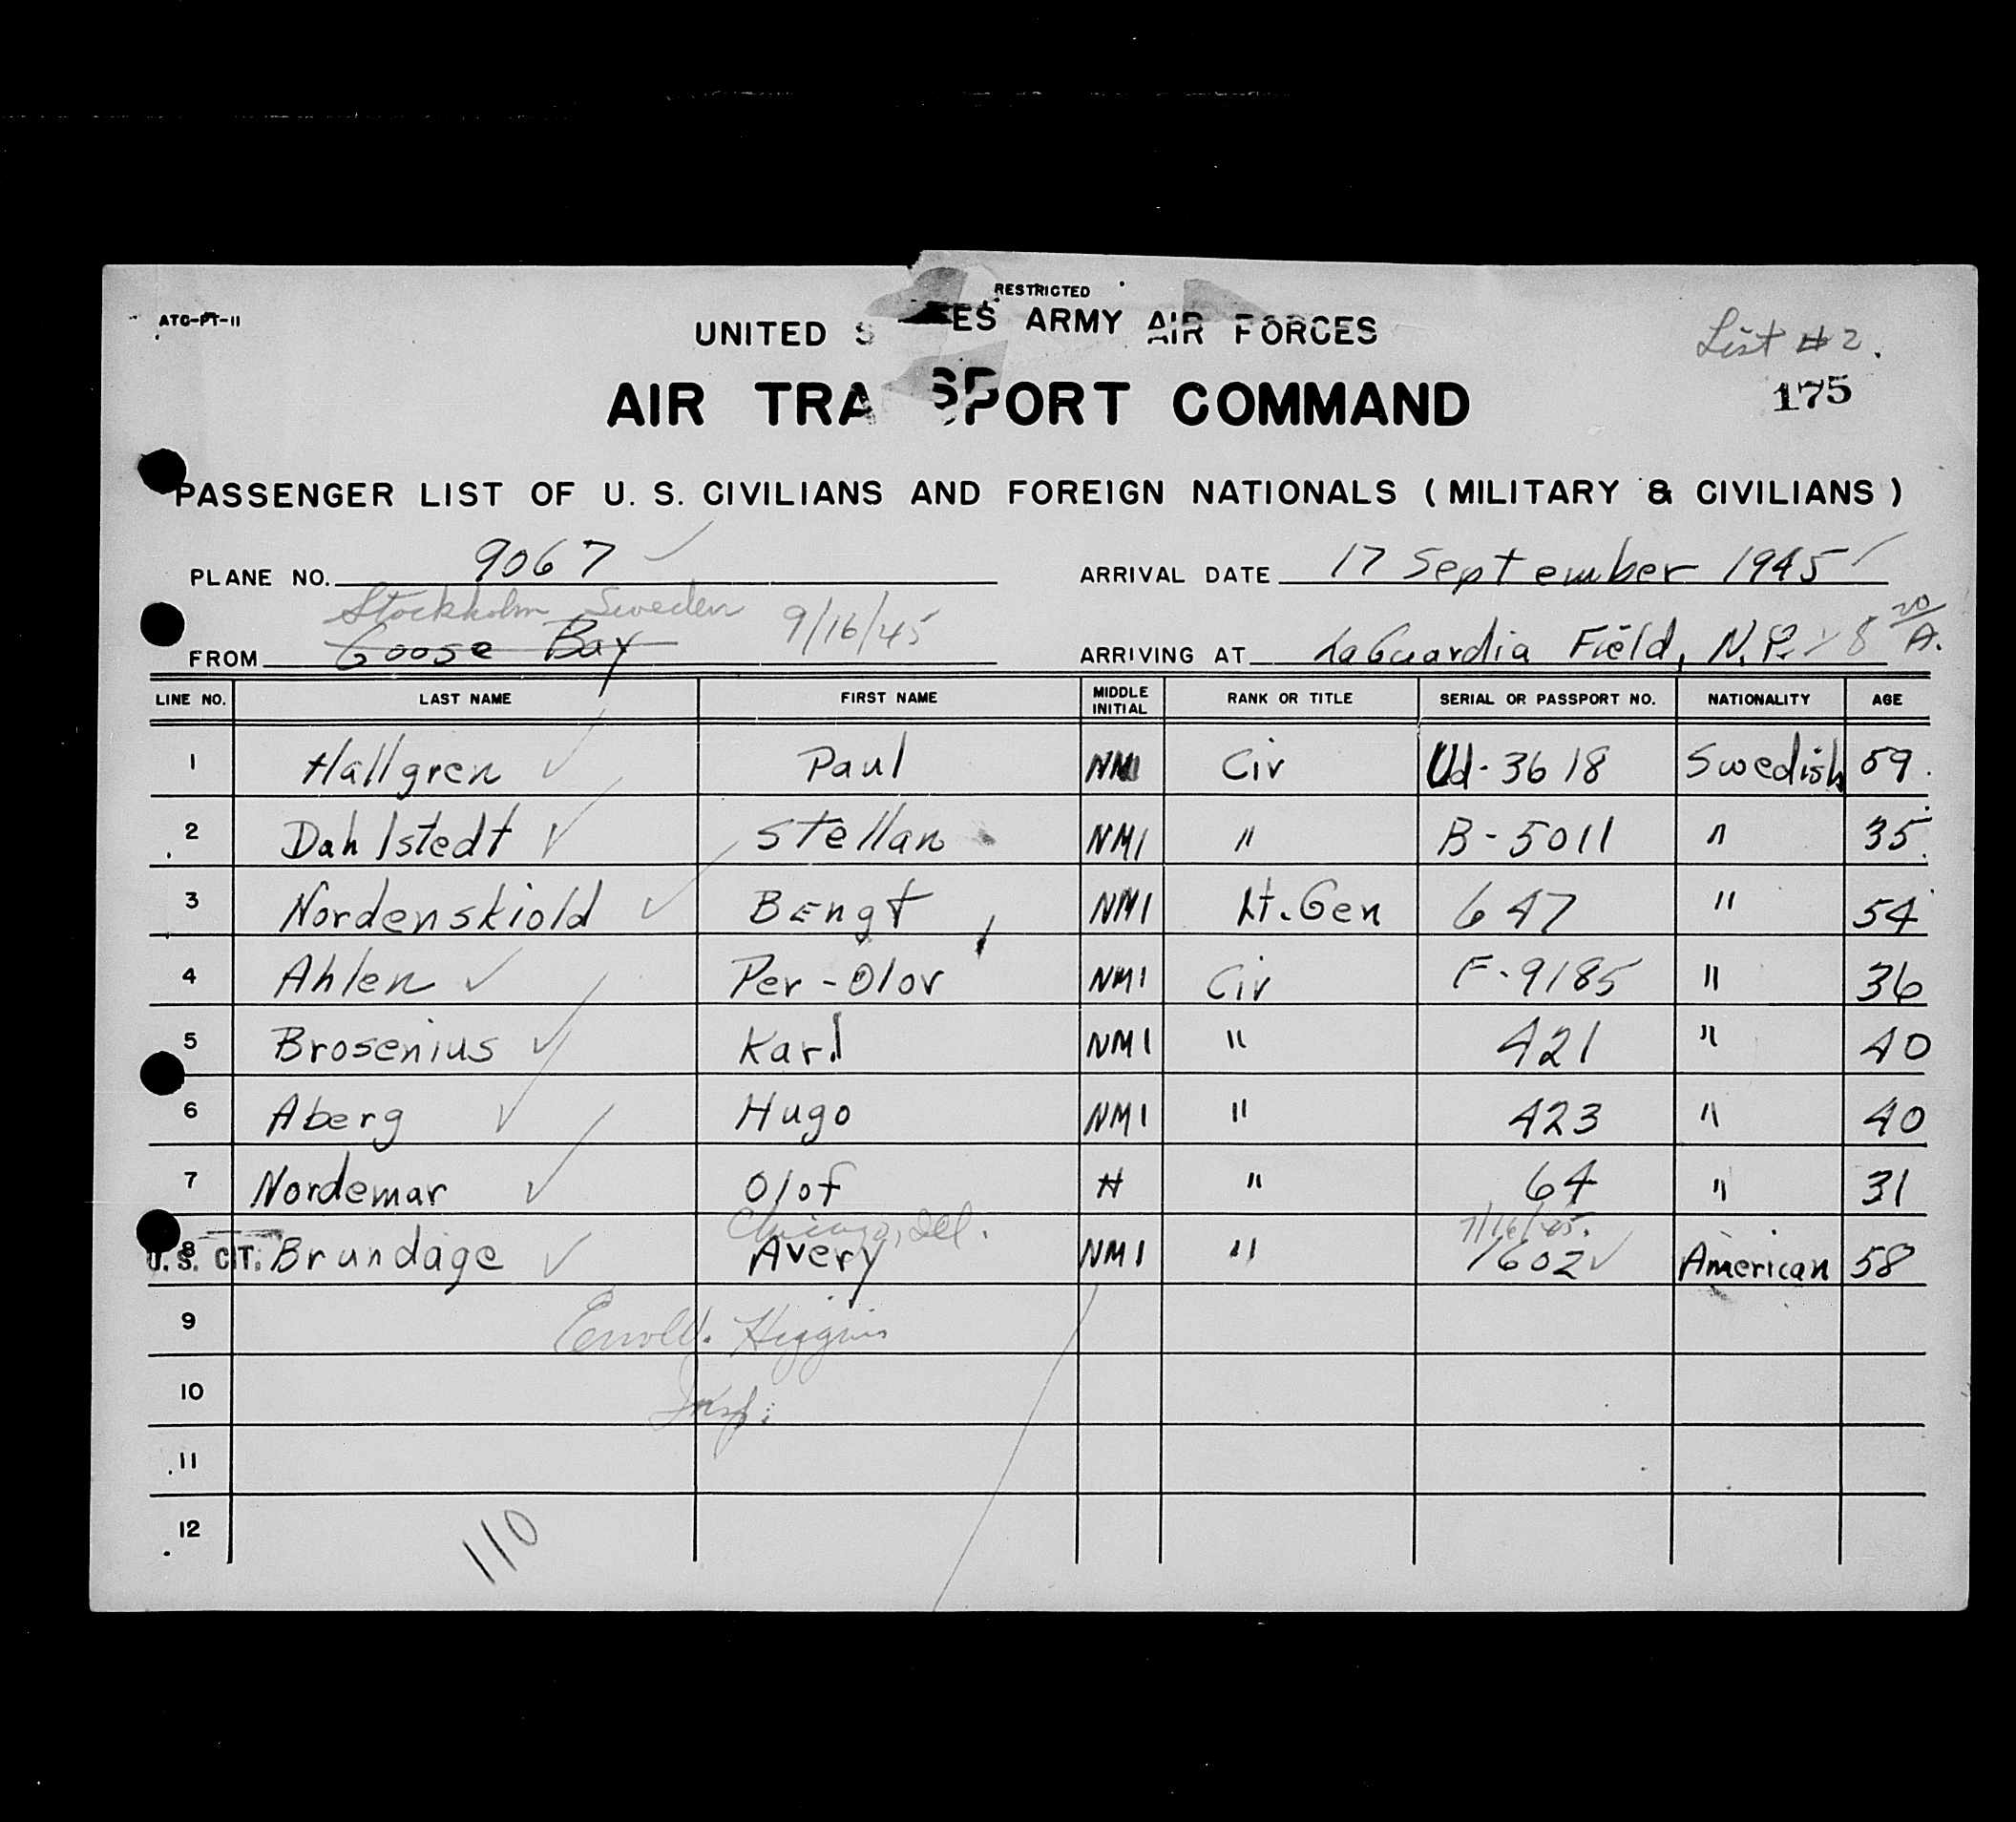 RESTRICTED
ATC-PT-11
UNITED S ES ARMY AIR FORCES
List #2.
AIR TRA SPORT COMMAND
175
PASSENGER LIST OF U. S. CIVILIANS AND FOREIGN NATIONALS (MILITARY & CIVILIANS)
PLANE NO. 9067 ✓ ARRIVAL DATE 17 September 1945 ✓
Stockholm Sweden 9/16/45
FROM Goose Bay ARRIVING AT LaGuardia Field, N.Y. 8 20/A.
LINE NO. LAST NAME FIRST NAME MIDDLE INITIAL RANK OR TITLE SERIAL OR PASSPORT NO. NATIONALITY AGE
1 Hallgren ✓ Paul NMI Civ Ud-3618 Swedish 59
2 Dahlstedt ✓ Stellan NMI " B-5011 " 35
3 Nordenskiold ✓ Bengt NMI Lt. Gen 647 " 54
4 Ahlen ✓ Per-Olov NMI Civ F-9185 " 36
5 Brosenius ✓ Karl NMI " 421 " 40
6 Aberg ✓ Hugo NMI " 423 " 40
7 Nordemar ✓ Olof H " 64 " 31
Chicago, Ill. 7/16/45.
8 U.S. CIT. Brundage ✓ Avery NMI " 1602 ✓ American 58
9 Higgins
10 Insp.
11
12
110